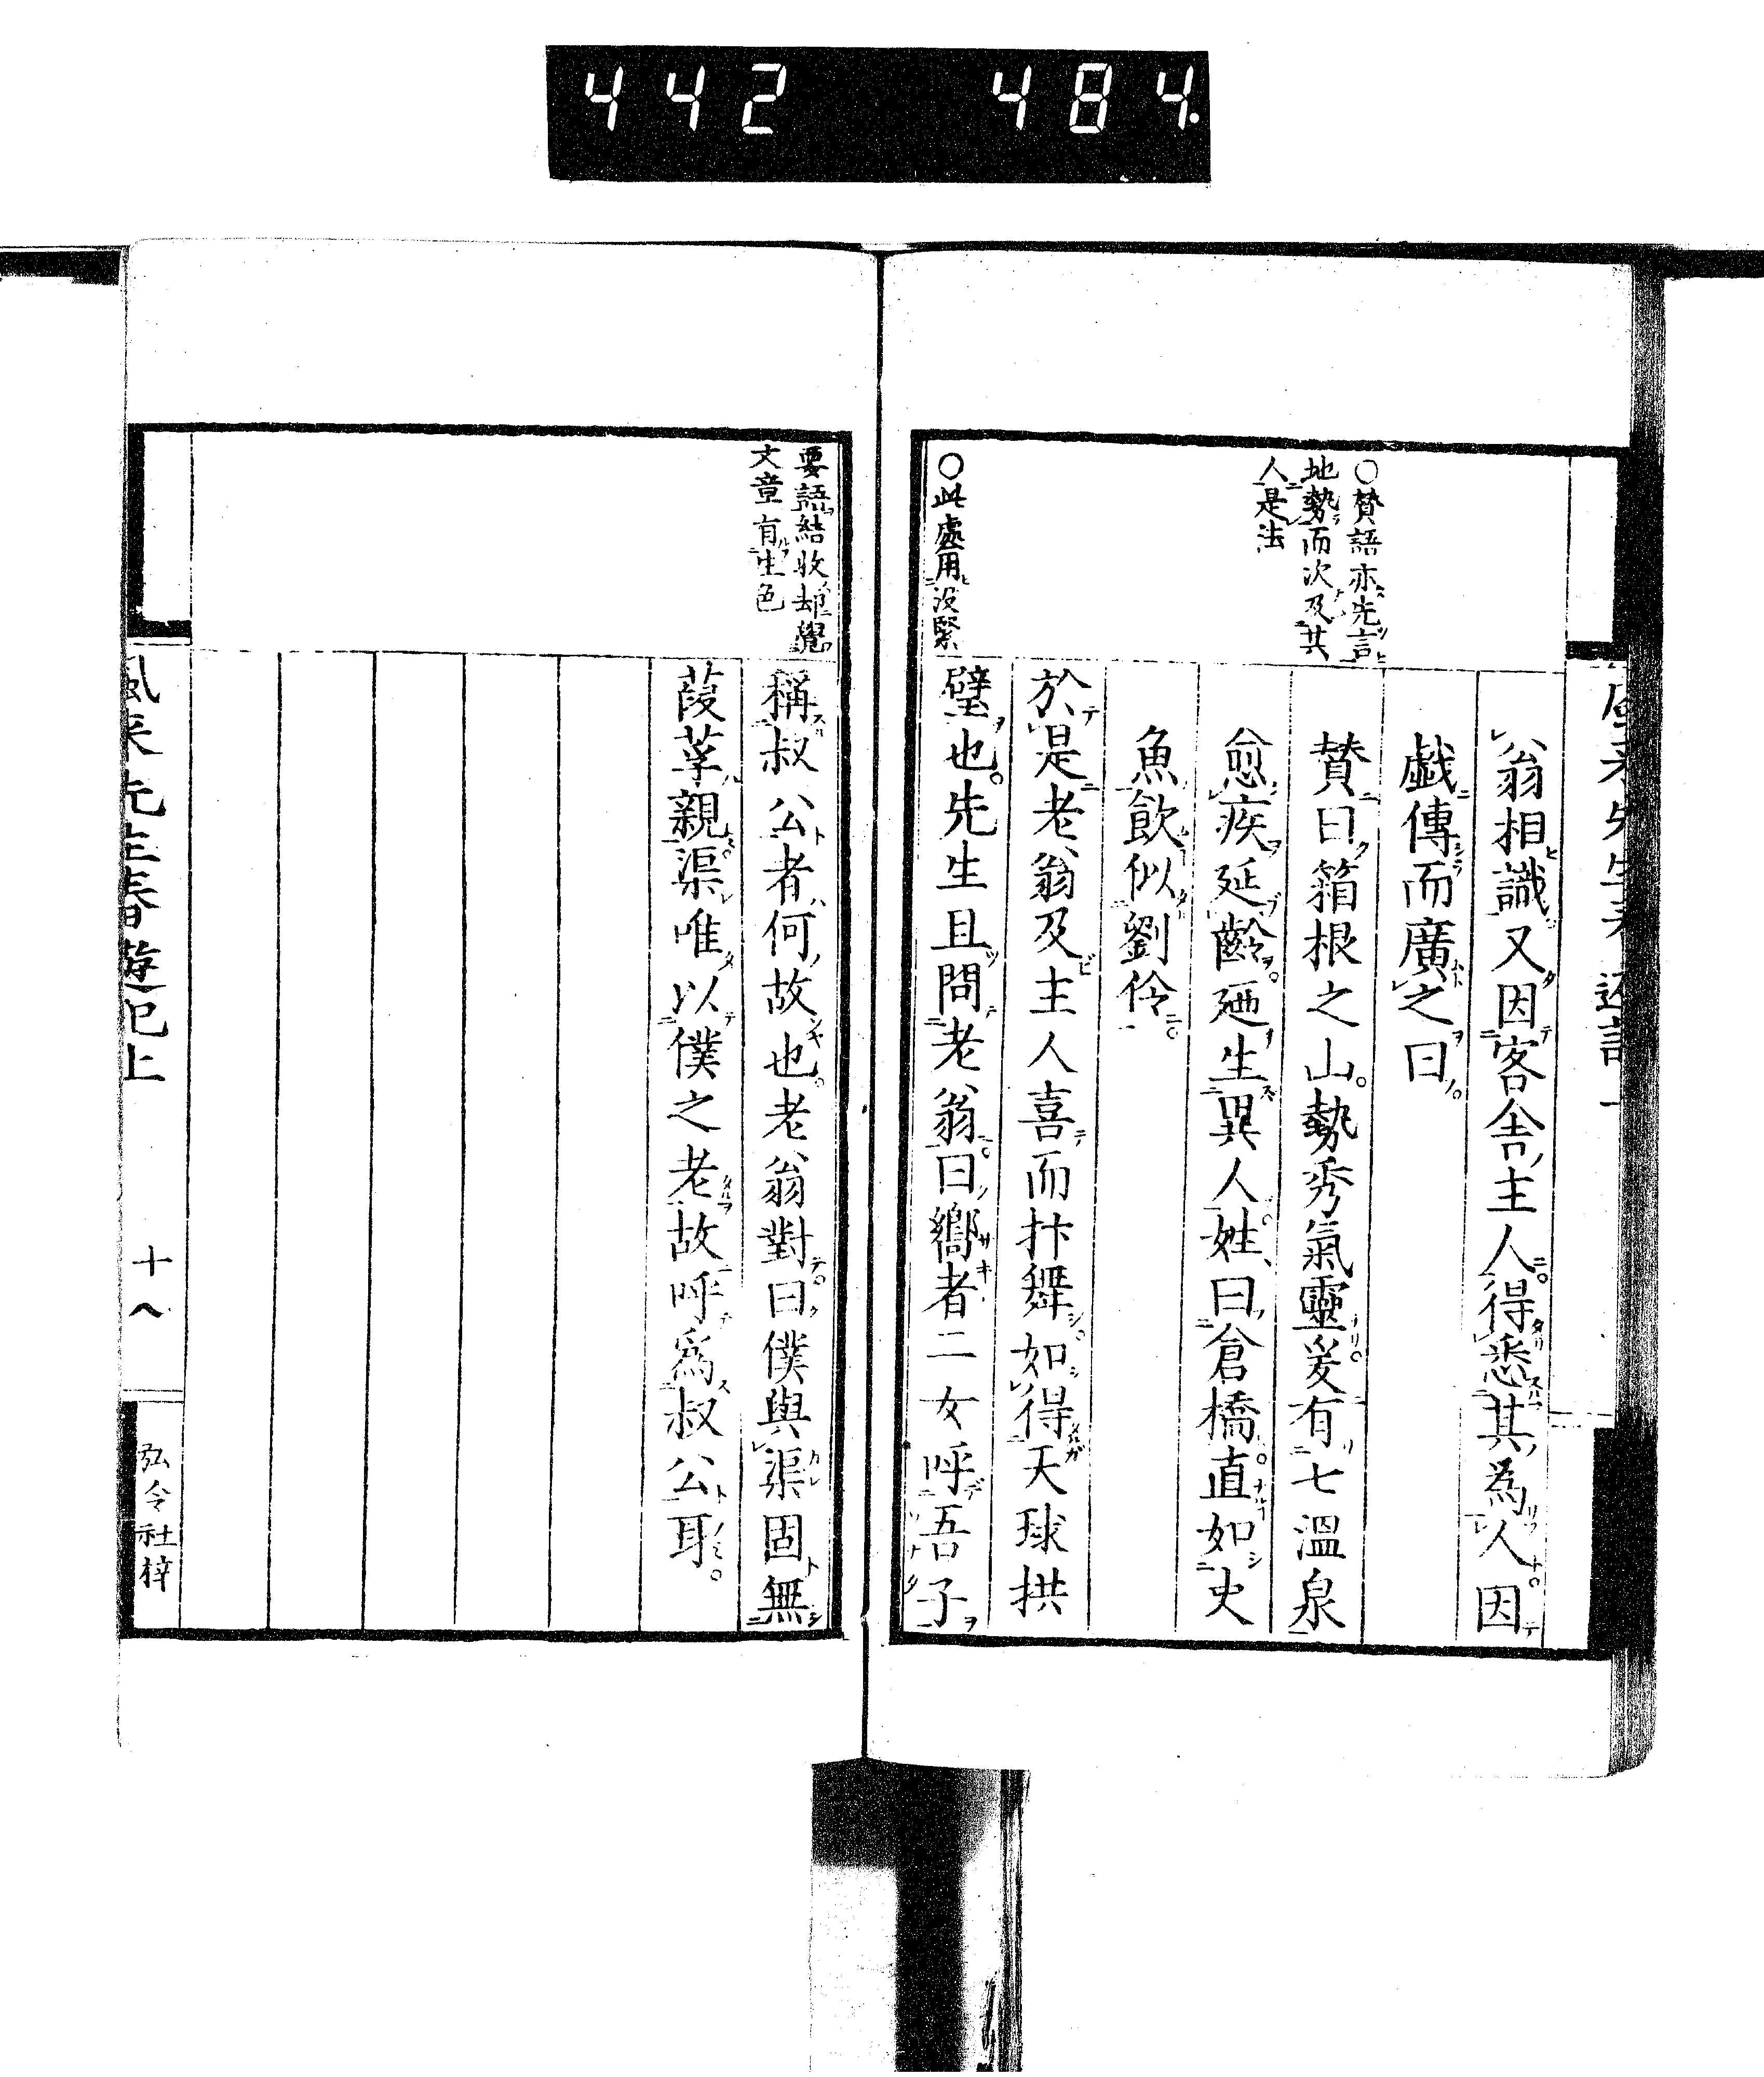 442 484.
○賛語亦先言
地勢而次及其
人是法
○此處用沒緊
翁相識又因客舎主人得悉其爲人因
戯傳而廣之曰
賛曰箱根之山勢秀氣靈爰有七温泉
愈疾延齡廼生異人姓曰倉橋直如史
魚飲似劉伶
於是老翁及主人喜而抃舞如得天球拱
璧也先生且問老翁曰嚮者二女呼吾子
要語結收却覺
文章有生色
稱叔公者何故也老翁對曰僕與渠固無
葭莩親渠唯以僕之老故呼爲叔公耳
風来先生春遊記上
十八
弘令社梓